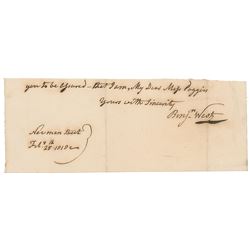 you to be assured – that I am, My Dear Miss Poggin
Yours with Sincerity
Benjn. West
Newman Street
Feby. 28th 1810